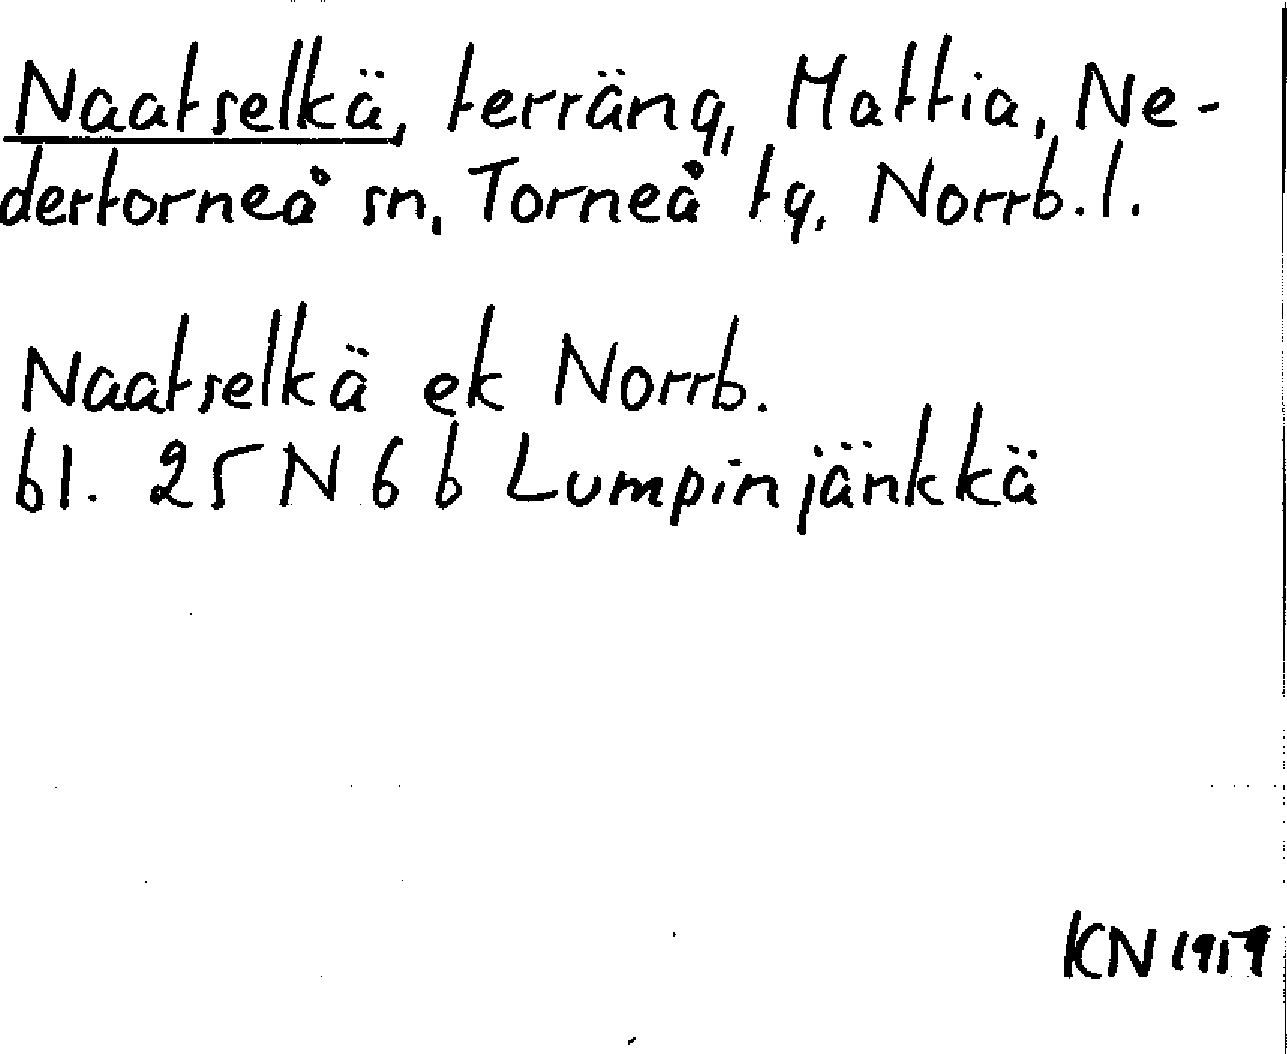 Naatselkä, terräng, Mattia, Ne-
dertorneå sn, Torneå tg, Norrb. l.
Naatselkä ek Norrb.
bl. 25 N 6 b Lumpinjänkkä
KN